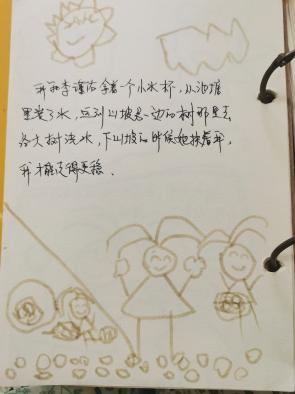 我和李谨佑拿着一个小水杯,从池塘
里装了水,运到山坡另一边的树那里去,
给大树浇水,下山坡的时候她扶着我,
我才能走得更稳.